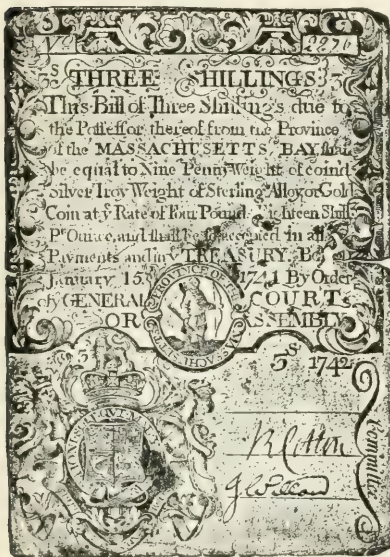 No 2276
3s THREE SHILLINGS
This Bill of Three Shillings due to
the Poſſeſſor thereof from the Province
of the MASSACHUSETTS BAY, shall
be equal to Nine Penny Weight of coind
Silver Troy Weight of Sterling Alloy or Gold
Coin at ye Rate of Four Pounds Eighteen Shills
Pr Ounce, and shall be so accepted in all
Payments and in ye TREASURY. Boston
January 15 1741 By Order
of ye GENERAL COURT
OR ASSEMBLY
3 3s 1742
HONI SOIT QUI MAL Y PENSE
Committee